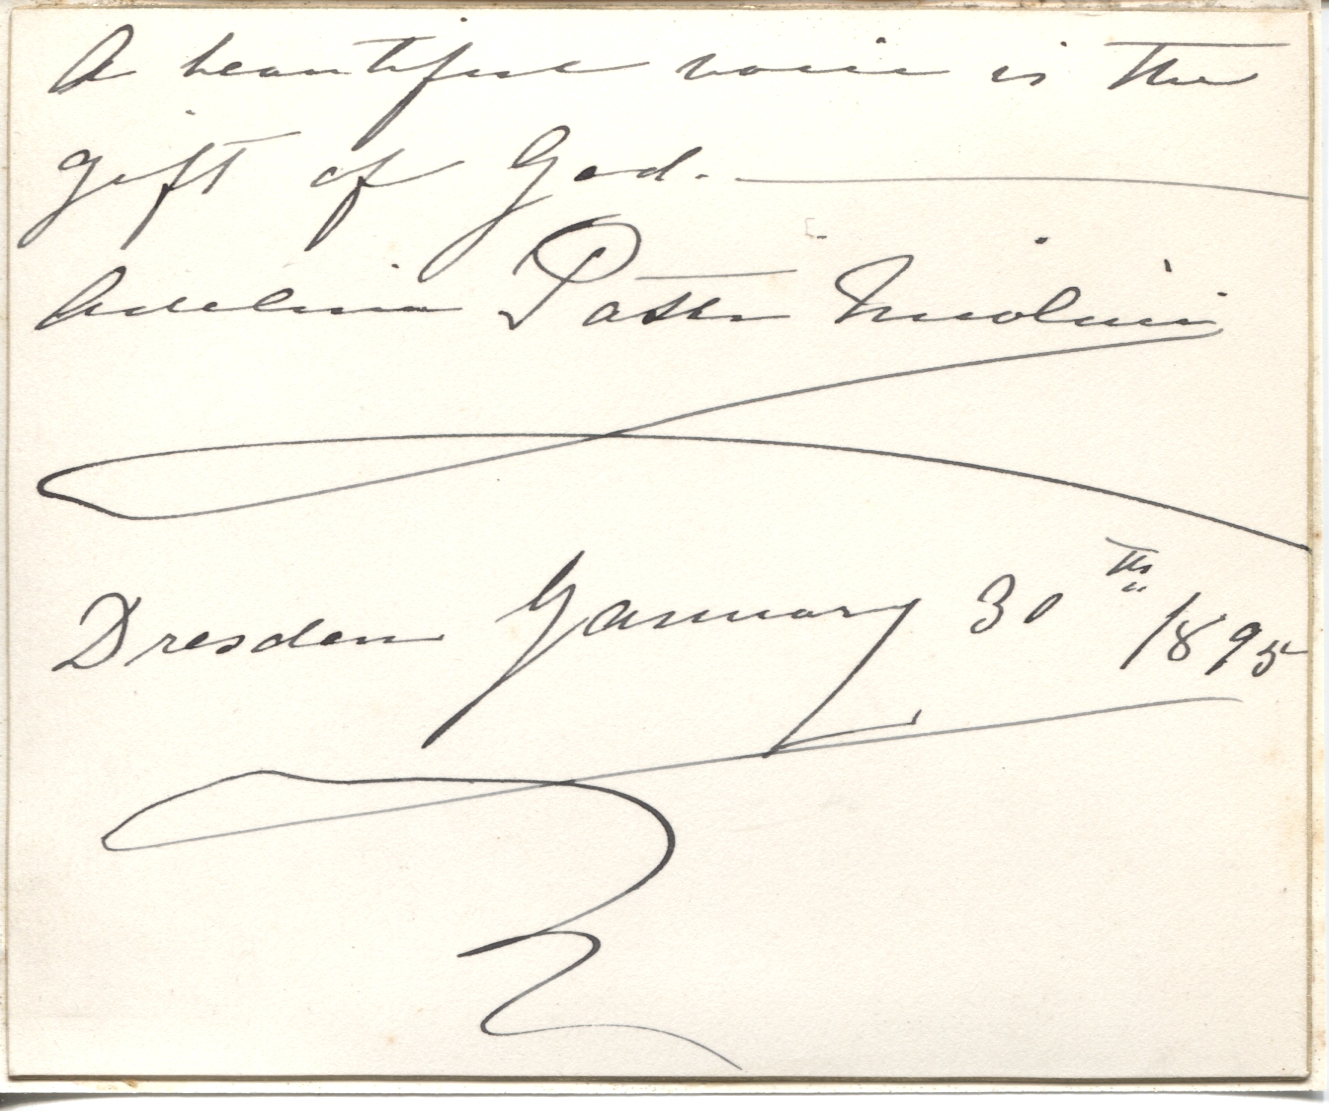 A beautiful voice is the
gift of God.
Adelina Patti Nicolini
Dresden January 30th 1895